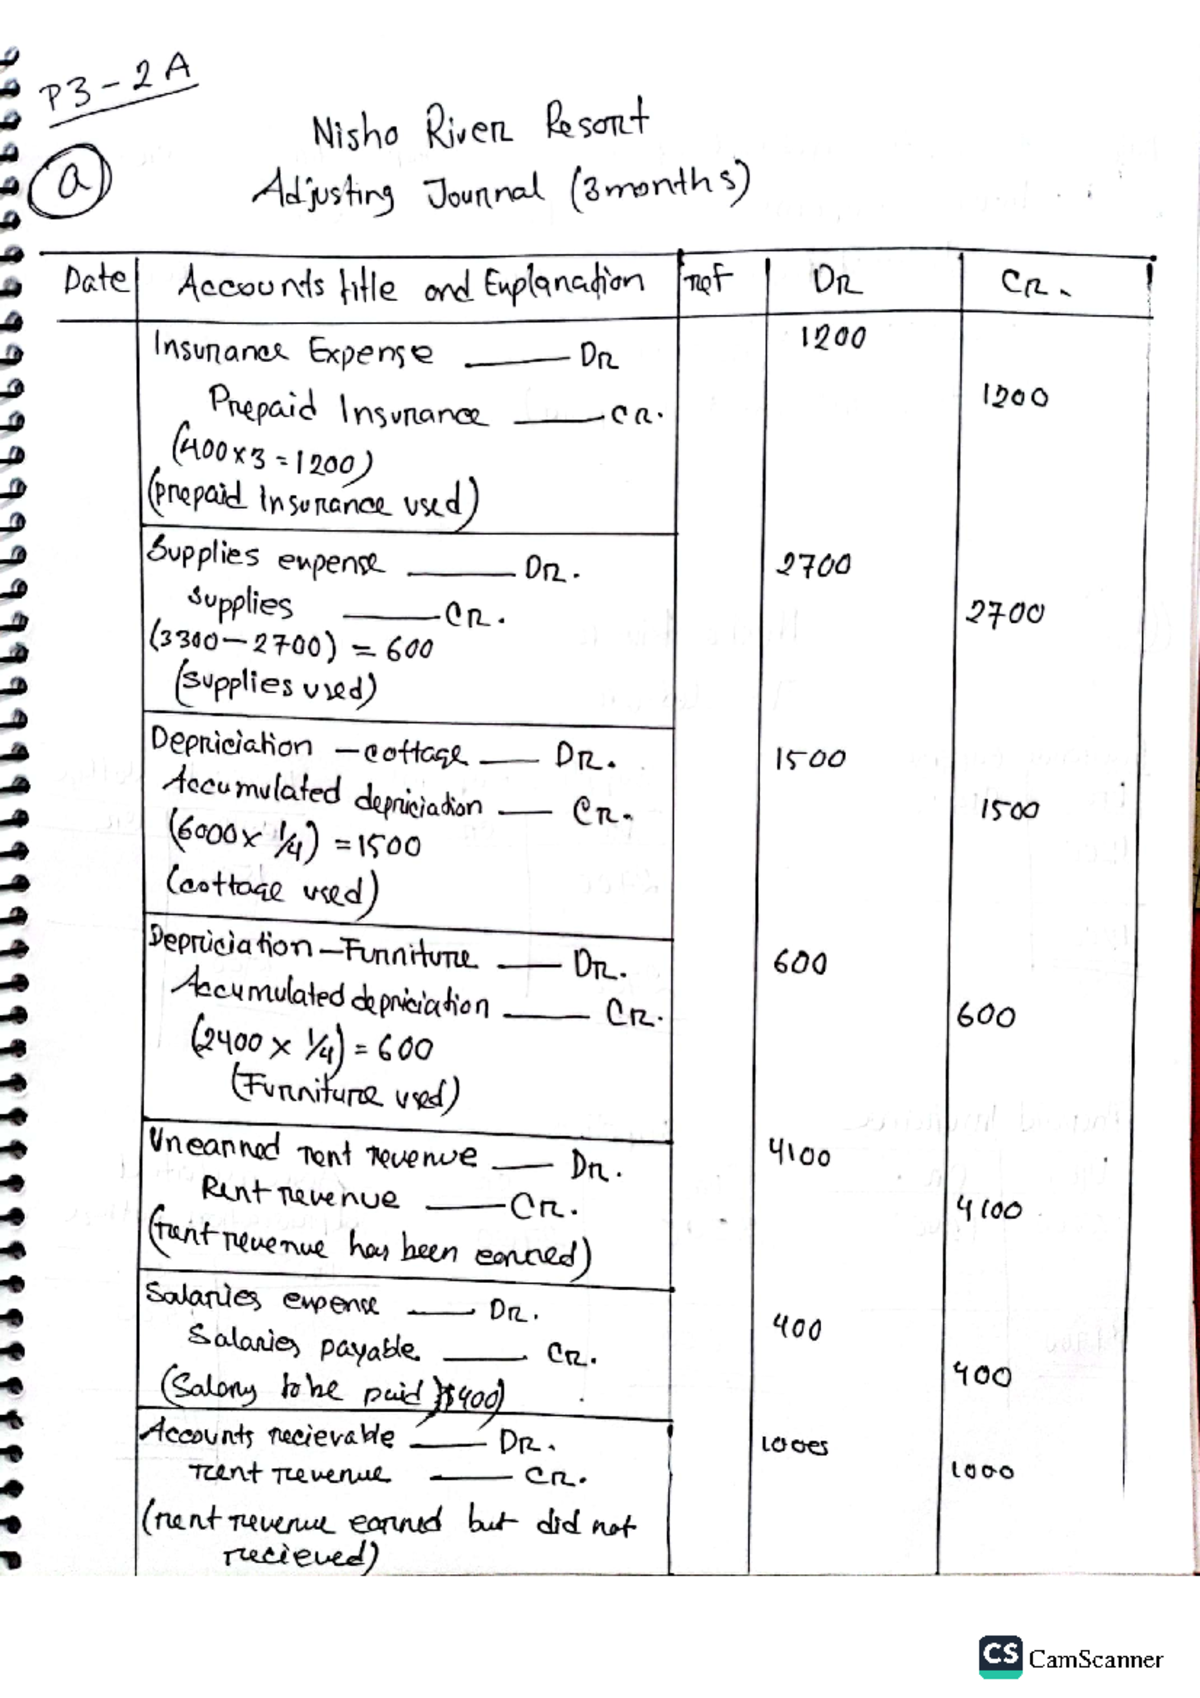 P3-2A
a
Nisho River Resort
Adjusting Journal (3months)
Date Accounts title and Explanation ref DR CR.
Insurance Expense — DR 1200
Prepaid Insurance — CR. 1200
(400x3=1200)
(prepaid Insurance used)
Supplies expense — DR. 2700
Supplies — CR. 2700
(3300-2700) = 600
(supplies used)
Depriciation - cottage — DR. 1500
Accumulated depriciation — CR. 1500
(6000x 1/4) = 1500
(cottage used)
Depriciation - Furniture — DR. 600
Accumulated depriciation — CR. 600
(2400 x 1/4) = 600
(Furniture used)
Unearned rent revenue — DR. 4100
Rent revenue — CR. 4100
(rent revenue has been earned)
Salaries expense — DR. 400
Salaries payable — CR. 400
(Salary to be paid $400)
Accounts recievable — DR.
rent revenue — CR. 1000
(rent revenue earned but did not
recieved)
CS CamScanner